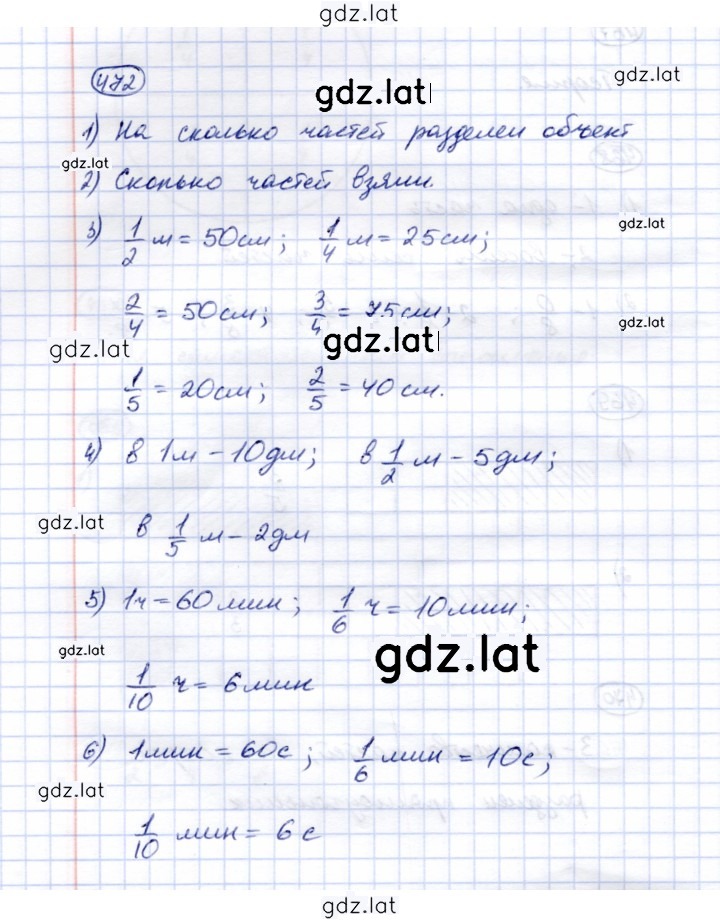 gdz.lat
472
gdz.lat
gdz.lat
1) На сколько частей разделен объект
gdz.lat
2) Сколько частей взяли.
gdz.lat
3) 1/2 м = 50см; 1/4 м = 25см;
2/4 = 50см; 3/4 = 75см;
gdz.lat
gdz.lat
gdz.lat
1/5 = 20см; 2/5 = 40см.
4) в 1м - 10дм; в 1/2 м - 5дм;
gdz.lat
в 1/5 м - 2дм
5) 1ч = 60мин; 1/6 ч = 10мин;
gdz.lat
gdz.lat
1/10 ч = 6мин
6) 1мин = 60с; 1/6 мин = 10с;
gdz.lat
1/10 мин = 6с
gdz.lat